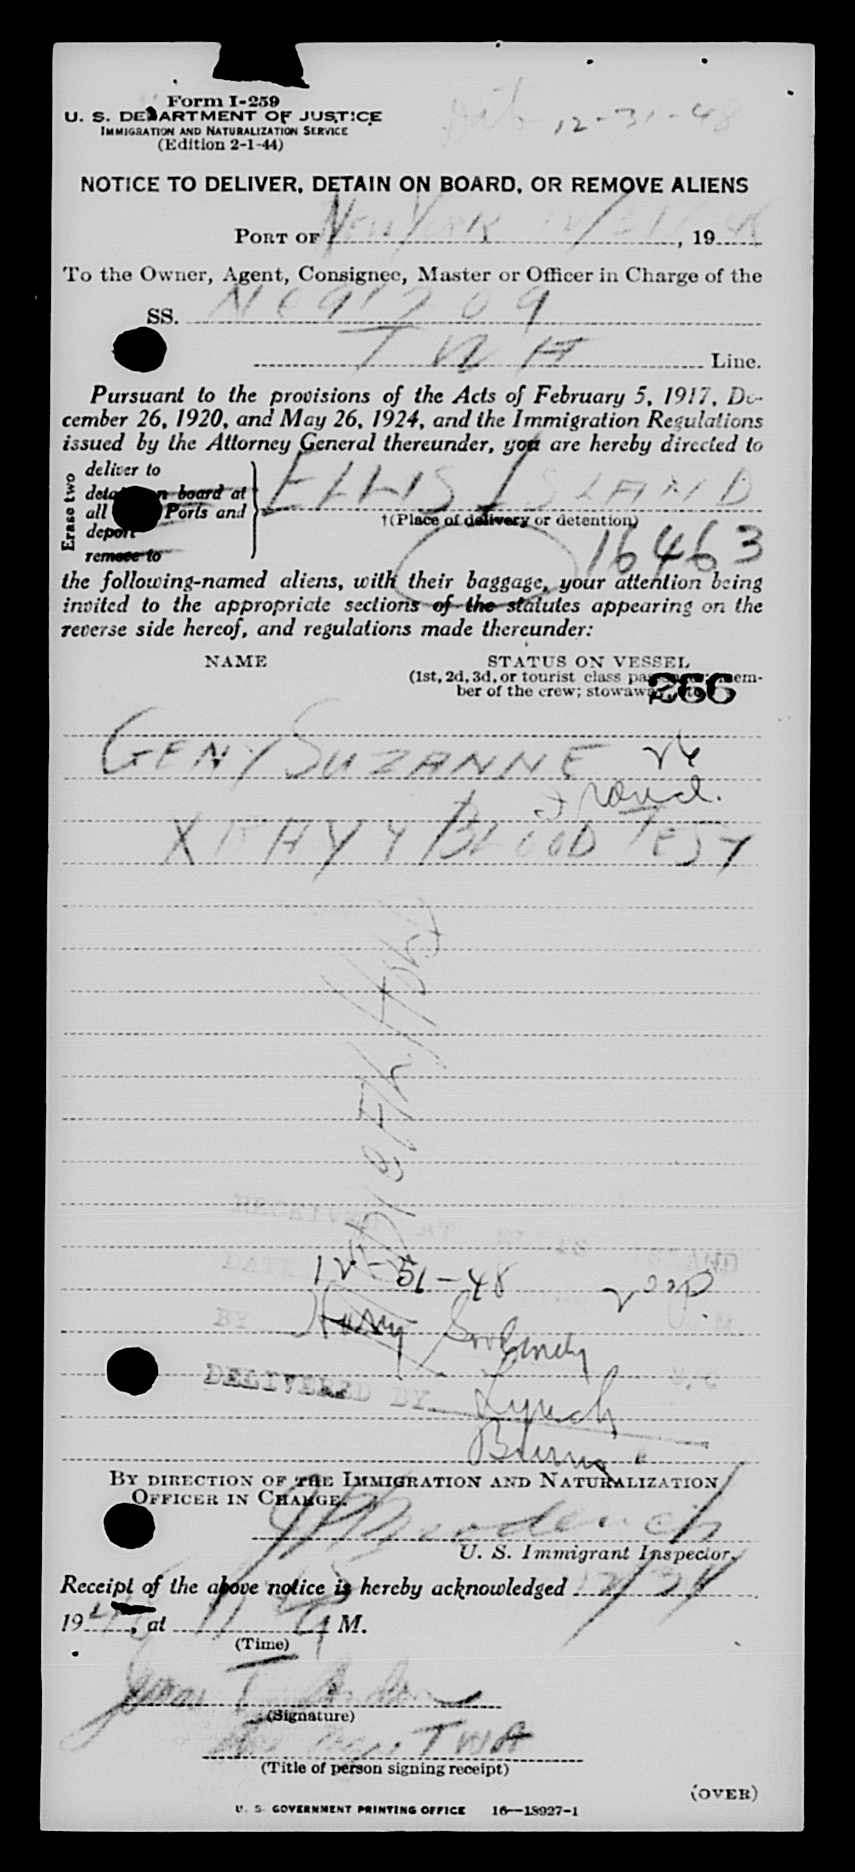 Form I-259
U. S. DEPARTMENT OF JUSTICE
IMMIGRATION AND NATURALIZATION SERVICE
(Edition 2-1-44)
12-31-48
NOTICE TO DELIVER, DETAIN ON BOARD, OR REMOVE ALIENS
PORT OF New York 12/31, 1948
To the Owner, Agent, Consignee, Master or Officer in Charge of the
SS. NC91209
TWA Line.
Pursuant to the provisions of the Acts of February 5, 1917, De-
cember 26, 1920, and May 26, 1924, and the Immigration Regulations
issued by the Attorney General thereunder, you are hereby directed to
Erase two
deliver to
detain on board at
all Ports and
deport
remove to
ELLIS ISLAND
†(Place of delivery or detention)
16463
the following-named aliens, with their baggage, your attention being
invited to the appropriate sections of the statutes appearing on the
reverse side hereof, and regulations made thereunder:
NAME STATUS ON VESSEL
(1st, 2d, 3d, or tourist class passenger; mem-
ber of the crew; stowaway, etc.)
266
GENY SUZANNE 26
XRAY BLOOD TEST
12-31-48
BY Harry
DELIVERED BY Lynch
Burns
BY DIRECTION OF THE IMMIGRATION AND NATURALIZATION
OFFICER IN CHARGE.
U. S. Immigrant Inspector.
Receipt of the above notice is hereby acknowledged 12/31
1948, at A M.
(Time)
(Signature)
TWA
(Title of person signing receipt)
(OVER)
U. S. GOVERNMENT PRINTING OFFICE 16—18927-1